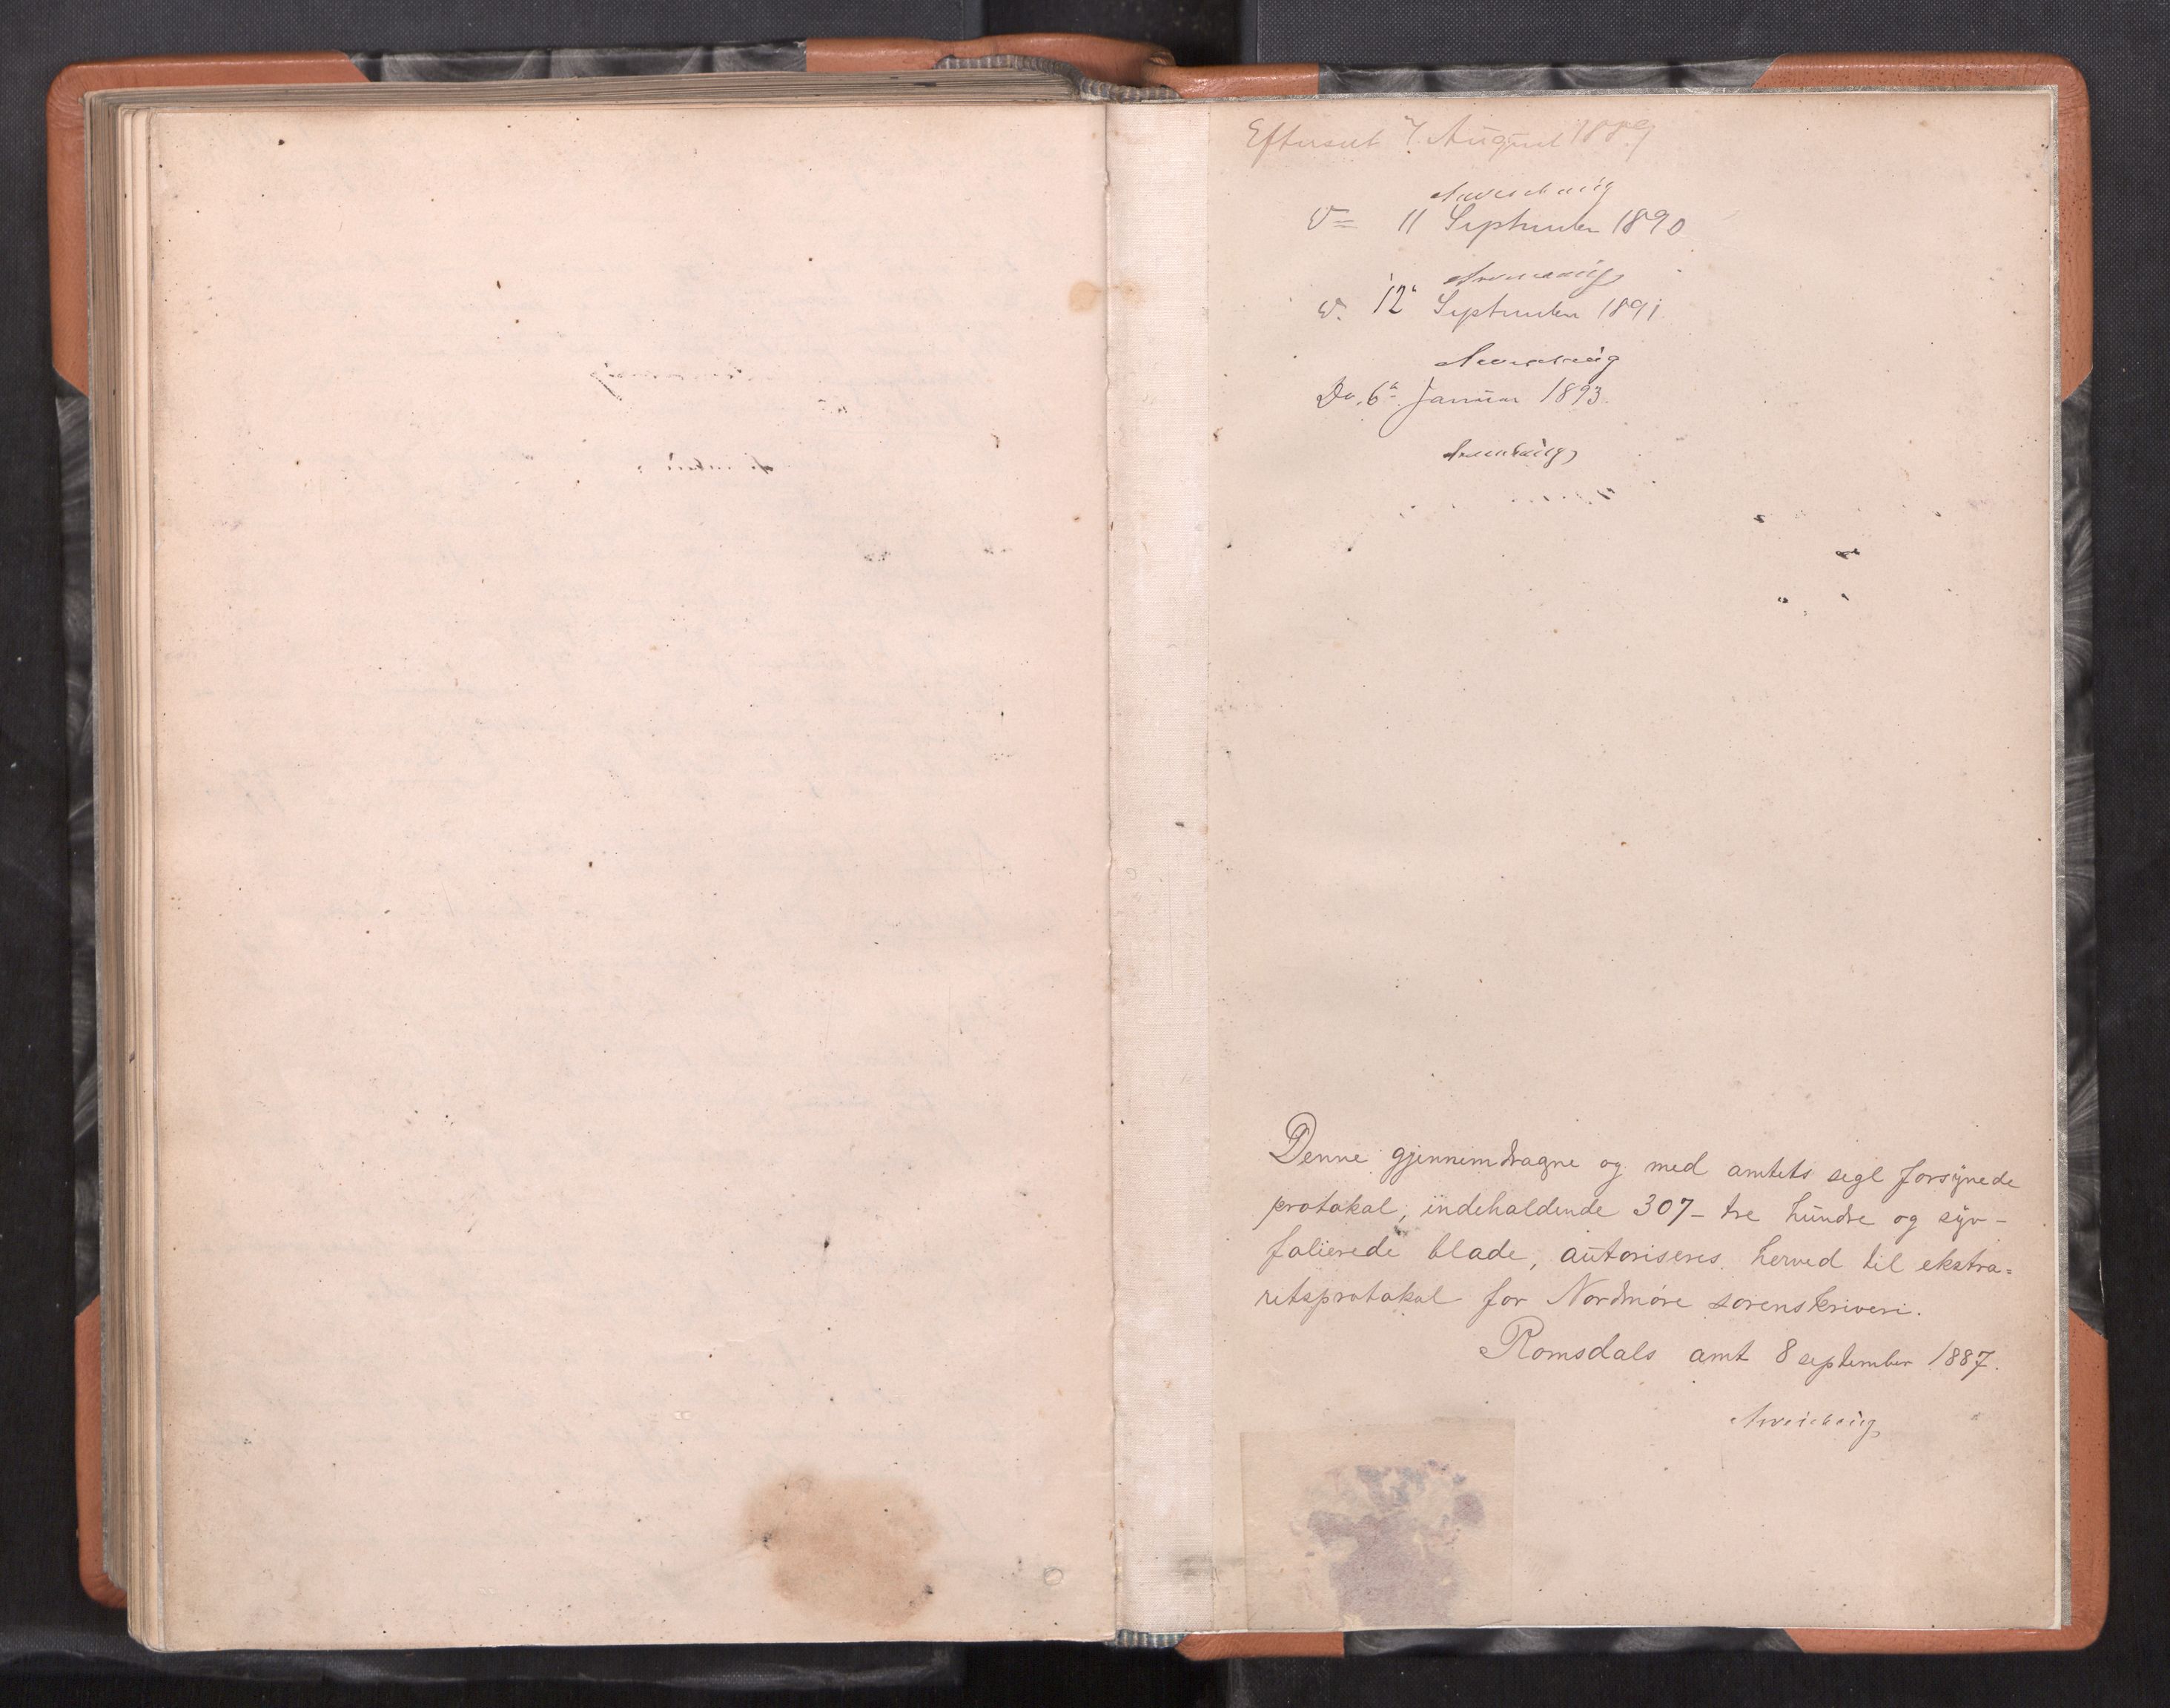 Efterseet 7 August 1889
11 September 1890
12 September 1891
Do. 6 Januar 1893.
Denne gjennemdragne og med amtets segl forsynede
protokol, indeholdende 307 – tre hundre og syv –
folierede blade, autoriseres herved til ekstra=
retsprotokol for Nordmøre sorenskriveri.
Romsdals amt 8 september 1887.